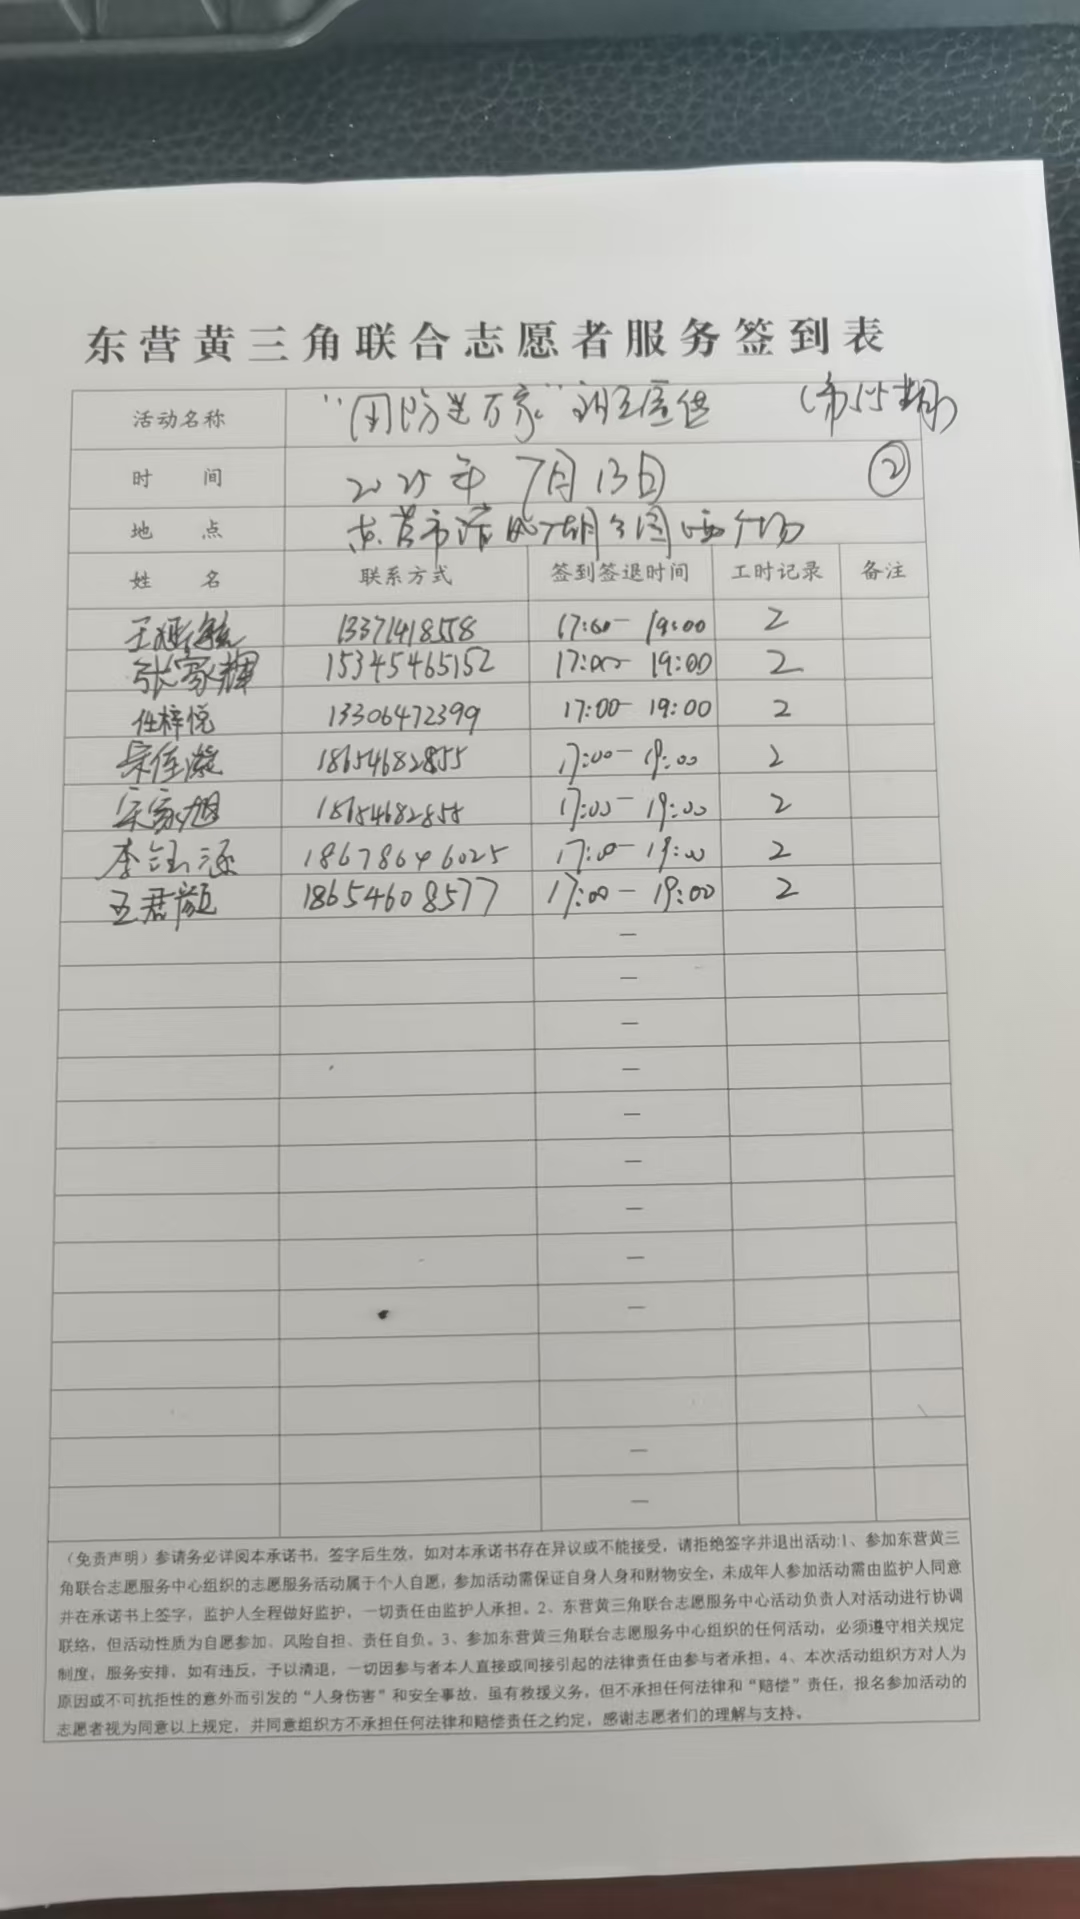 东营黄三角联合志愿者服务签到表
活动名称 “国防送万家” (第155期)
时 间 2025年7月13日 ②
地 点 东营市清风湖公园西广场
姓 名 联系方式 签到签退时间 工时记录 备注
13371418558 17:00- 19:00 2
张家辉 15345465152 17:00- 19:00 2
任梓悦 13306472399 17:00- 19:00 2
宋佳漩 18654682855 17:00- 19:00 2
宋家旭 18654682855 17:00- 19:00 2
李钰涵 18678646025 17:00- 19:00 2
王君颜 18654608577 17:00 - 19:00 2
—
—
—
—
—
—
—
—
—
—
—
(免责声明)参请务必详阅本承诺书,签字后生效,如对本承诺书存在异议或不能接受,请拒绝签字并退出活动:1、参加东营黄三
角联合志愿服务中心组织的志愿服务活动属于个人自愿,参加活动需保证自身人身和财物安全,未成年人参加活动需由监护人同意
并在承诺书上签字,监护人全程做好监护,一切责任由监护人承担。2、东营黄三角联合志愿服务中心活动负责人对活动进行协调
联络,但活动性质为自愿参加、风险自担、责任自负。3、参加东营黄三角联合志愿服务中心组织的任何活动,必须遵守相关规定
制度,服务安排,如有违反,予以清退,一切因参与者本人直接或间接引起的法律责任由参与者承担。4、本次活动组织方对人为
原因或不可抗拒性的意外而引发的“人身伤害”和安全事故,虽有救援义务,但不承担任何法律和“赔偿”责任,报名参加活动的
志愿者视为同意以上规定,并同意组织方不承担任何法律和赔偿责任之约定,感谢志愿者们的理解与支持。